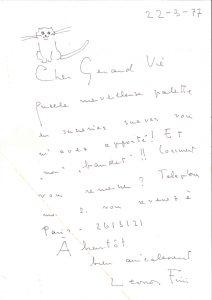 22-3-77
Cher Gérard Vié
quelle merveilleuse palette
en sucreries suaves vous
m'avez apporté! Et
"mon" "bandeit" !! Comment
vous remercier? Telephonez
moi si vous revenez à
Paris - 2613121
À bientôt
bien amicalement
Leonor Fini